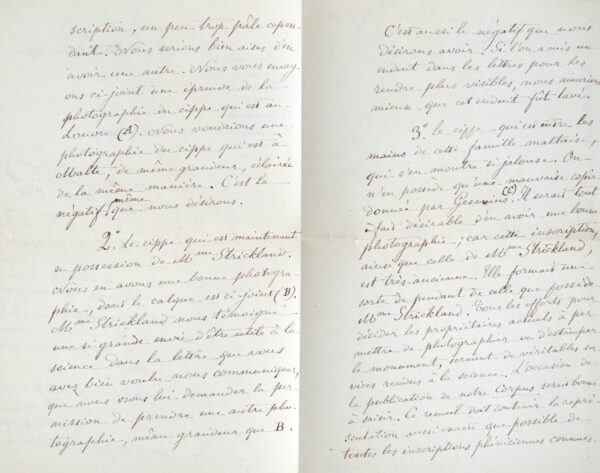 scription, un peu trop pâle cepen-
dant. Nous serions bien aises d'en
avoir une autre. Nous vous envoy-
ons ci-joint une épreuve de la
photographie du cippe qui est au
Louvre (A). Nous voudrions une
photographie du cippe qui est à
Malte, de même grandeur, éclairée
de la même manière. C'est le
négatif même que nous désirons.
2° Le cippe qui est maintenant
en possession de Mme Strickland.
Nous en avons une bonne photogra-
phie, dont le calque est ci-joint (B).
Mme Strickland nous témoigne
une si grande envie d'être utile à la
science dans la lettre que vous
avez bien voulu nous communiquer,
que nous osons lui demander la per-
mission de prendre une autre pho-
tographie, même grandeur que B.
C'est aussi le négatif que nous
désirons avoir. Si l'on a mis un
enduit dans les lettres pour les
rendre plus visibles, nous aimerions
mieux que cet enduit fût lavé.
3° le cippe qui est entre les
mains de cette famille maltaise,
qui s'en montre si jalouse. On
n'en possède qu'une mauvaise copie
donnée par Gesenius (C). Il serait tout
à fait désirable d'en avoir une bonne
photographie, car cette inscription,
ainsi que celle de Mme Strickland,
est très ancienne. Elle formait une
sorte de pendant de celle que possède
Mme Strickland. Tous les efforts pour
décider les propriétaires actuels à per-
mettre de photographier ou d'estamper
le monument, seraient de véritables ser-
vices rendus à la science. L'occasion de
la publication de notre Corpus serait bonne
à saisir. Ce recueil doit contenir la repré-
sentation aussi exacte que possible de
toutes les inscriptions phéniciennes connues.